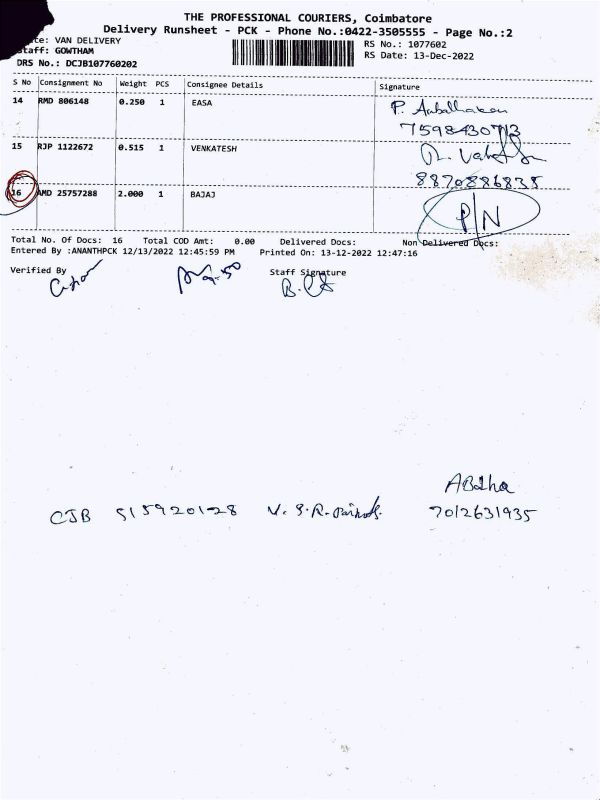 THE PROFESSIONAL COURIERS, Coimbatore
Delivery Runsheet - PCK - Phone No.:0422-3505555 - Page No.:2
VAN DELIVERY
RS No.: 1077602
Staff: GOWTHAM
RS Date: 13-Dec-2022
DRS No.: DCJB107760202
S No Consignment No Weight PCS Consignee Details Signature
14 RMD 806148 0.250 1 EASA P.
7598430713
15 RJP 1122672 0.515 1 VENKATESH
8870886835
16 AMD 25757288 2.000 1 BAJAJ P/N
Total No. Of Docs: 16 Total COD Amt: 0.00 Delivered Docs: Non Delivered Docs:
Entered By :ANANTHPCK 12/13/2022 12:45:59 PM Printed On: 13-12-2022 12:47:16
Verified By Staff Signature
CJB 515920128 V. S. R.
7012631935